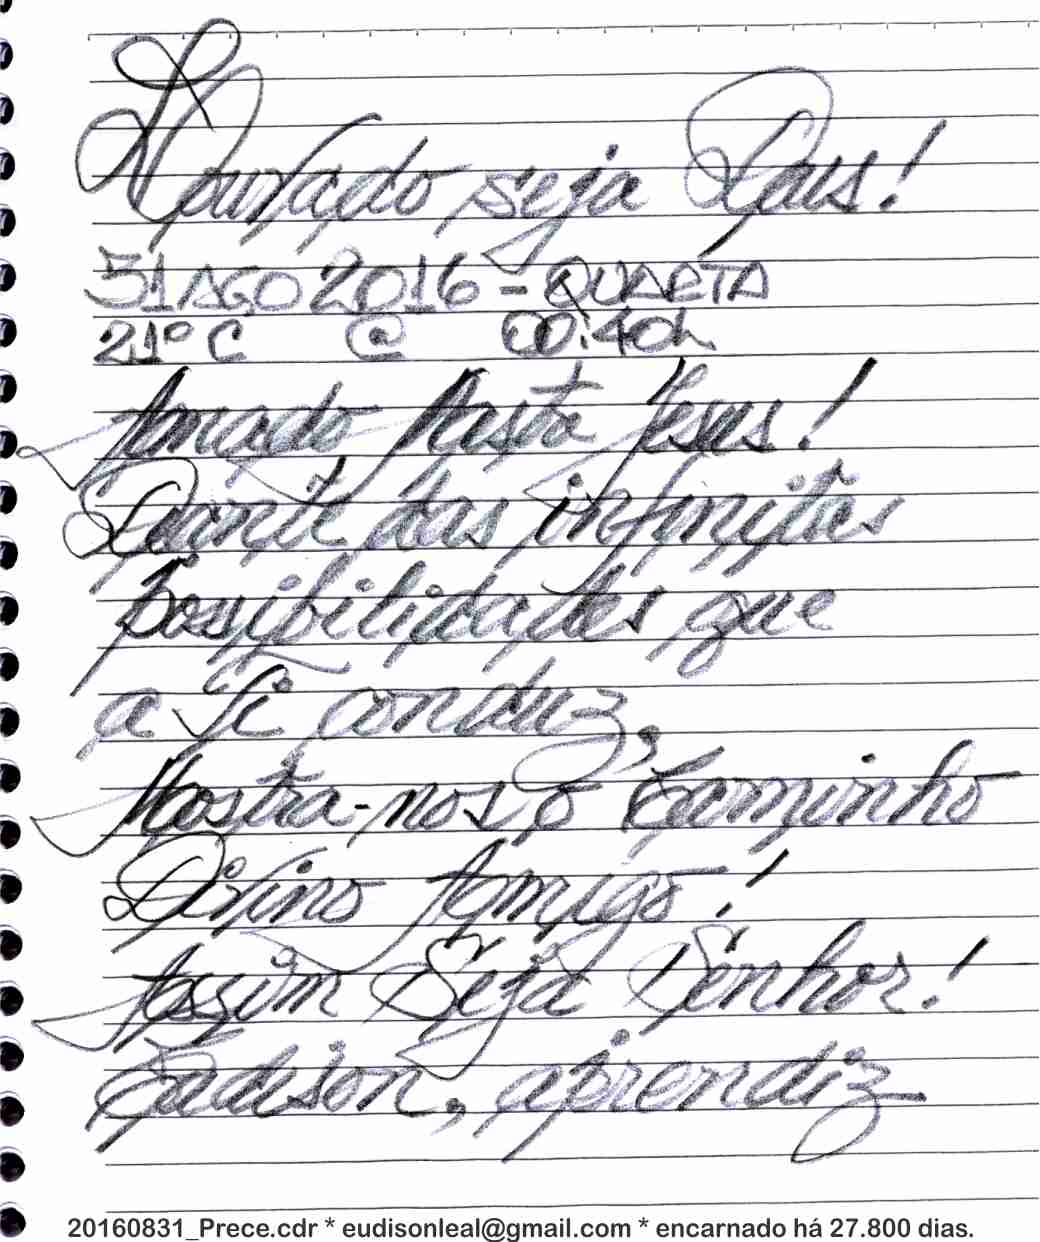 Louvado seja Deus!
31 AGO 2016 - QUARTA
21º C @ 00:40h
Amado Mestre Jesus!
Diante das infinitas
possibilidades que
a Ti conduz,
Mostra-nos o Caminho
Divino Amigo!
Assim Seja Senhor!
Eudison, aprendiz
20160831_Prece.cdr * eudisonleal@gmail.com * encarnado há 27.800 dias.